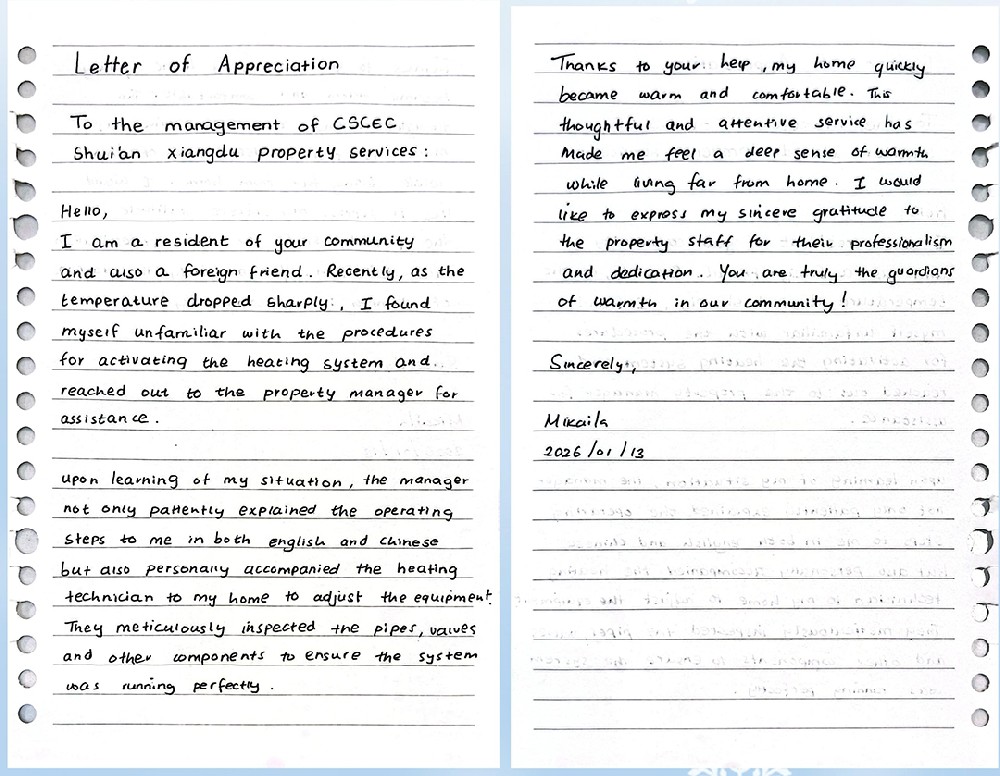 Letter of Appreciation
To the management of CSCEC
Shui'an xiangdu property services:
Hello,
I am a resident of your community
and also a foreign friend. Recently, as the
temperature dropped sharply, I found
myself unfamiliar with the procedures
for activating the heating system and
reached out to the property manager for
assistance.
upon learning of my situation, the manager
not only patiently explained the operating
steps to me in both english and chinese
but also personally accompanied the heating
technician to my home to adjust the equipment.
They meticulously inspected the pipes, valves
and other components to ensure the system
was running perfectly.
Thanks to your help, my home quickly
became warm and comfortable. This
thoughtful and attentive service has
Made me feel a deep sense of warmth
while living far from home. I would
like to express my sincere gratitude to
the property staff for their professionalism
and dedication. You are truly the guardians
of warmth in our community!
Sincerely,
Mikaila
2026/01/13